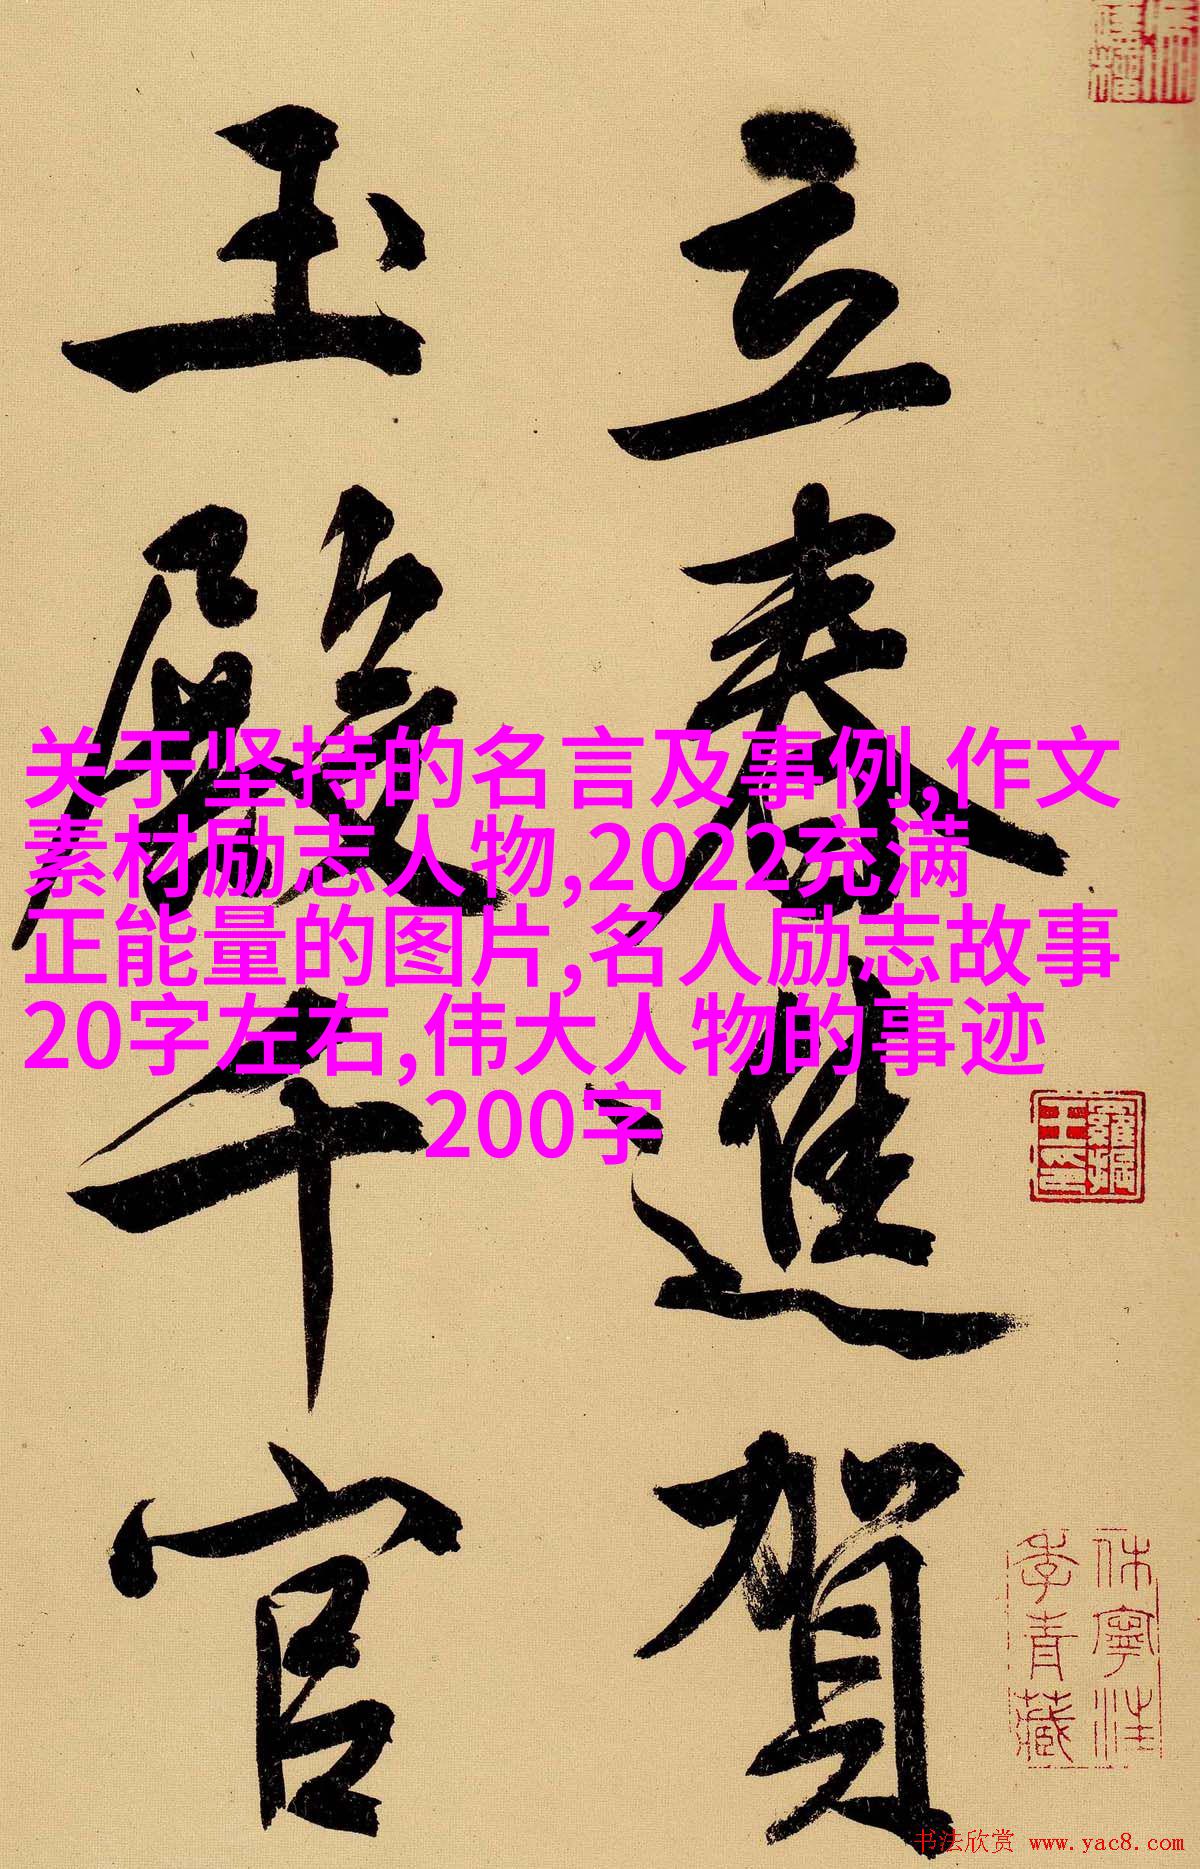 立春進賀
玉殿千官
关于坚持的名言及事例,作文
素材励志人物,2022充满
正能量的图片,名人励志故事
20字左右,伟大人物的事迹
200字
休寧汪
季青藏
书法欣赏 www.yac8.com